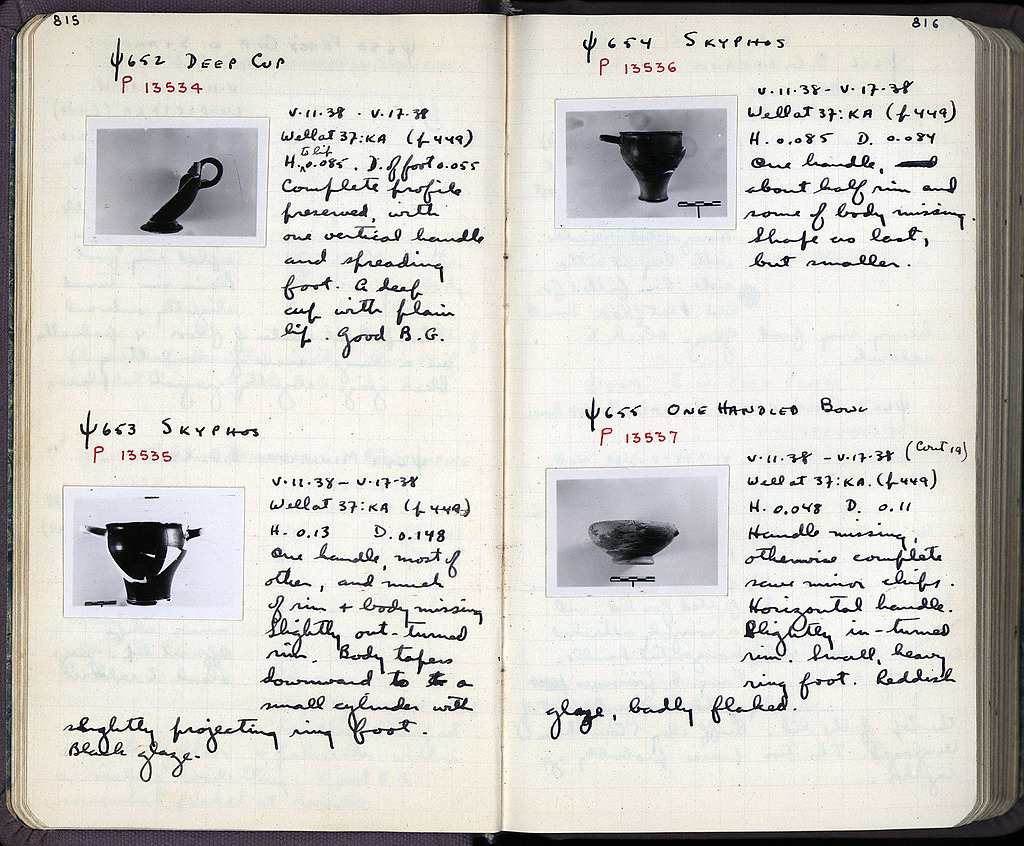 815
ψ652 DEEP CUP
P 13534
V·11·38 · V·17·38
Well at 37:KA (p449)
to lip
H. 0.085. D. of foot 0.055
Complete profile
preserved, with
one vertical handle
and spreading
foot. A deep
cup with plain
lip. Good B.G.
ψ653 SKYPHOS
P 13535
V·11·38 – V·17·38
Well at 37:KA (p449)
H. 0.13 D. 0.148
One handle, most of
other, and much
of rim + body missing
Slightly out-turned
rim. Body tapers
downward to a
small cylinder with
slightly projecting ring foot.
Black glaze.
816
ψ654 SKYPHOS
P 13536
V·11·38 – V·17·38
Well at 37:KA (p449)
H. 0.085 D. 0.084
One handle,
about half rim and
some of body missing.
Shape as last,
but smaller.
ψ655 ONE HANDLED BOWL
P 13537
V·11·38 – V·17·38 (Cont 19)
Well at 37:KA. (p449)
H. 0.048 D. 0.11
Handle missing,
otherwise complete
save minor chips.
Horizontal handle.
Slightly in-turned
rim. Small, heavy
ring foot. Reddish
glaze, badly flaked.